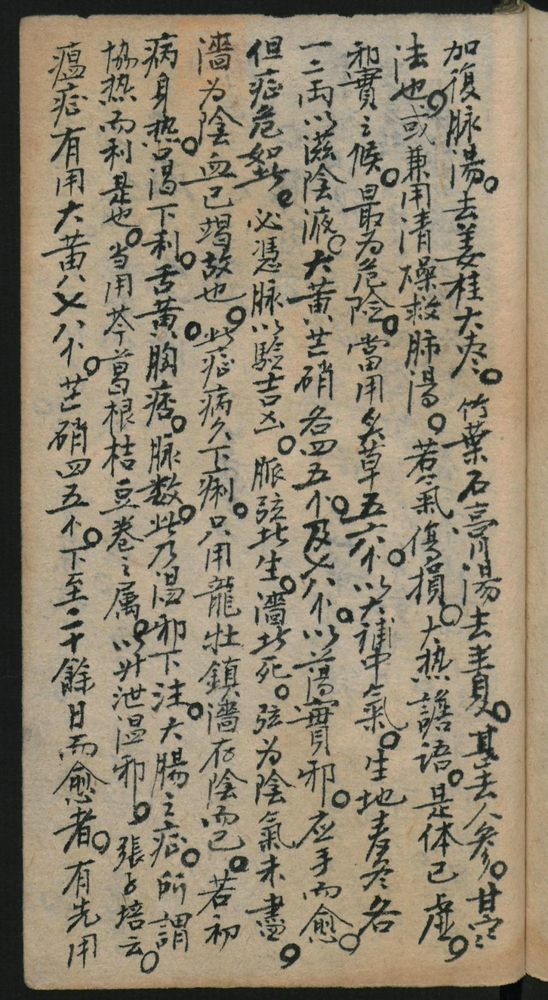 加復脉湯。去姜桂大枣。竹葉石膏湯去半夏。甚去人參。甘寒
法也。或兼用清燥救肺湯。若氣傷損。大热譫语。是体已虛。
邪實之候。最为危险。當用炙草五六个。以大補中氣。生地麦冬各
一二両以滋陰液。大黄芒硝各四五个。及七八个。以蕩實邪。应手而愈。
但症危如此。必憑脉以驗吉凶。脈弦者生。濇者死。弦为陰氣未盡。
濇为陰血已竭故也。此症病久下痢。只用龍牡鎮濇存陰而已。若初
病身热口渴下利。舌黄胸痞。脉数。此乃温邪下注大腸之症。所謂
協热而利是也。当用芩葛根桔豆卷之属。以升泄温邪。張占培云。
瘟症有用大黄八七八个。芒硝四五个。下至二十餘日而愈者。有先用